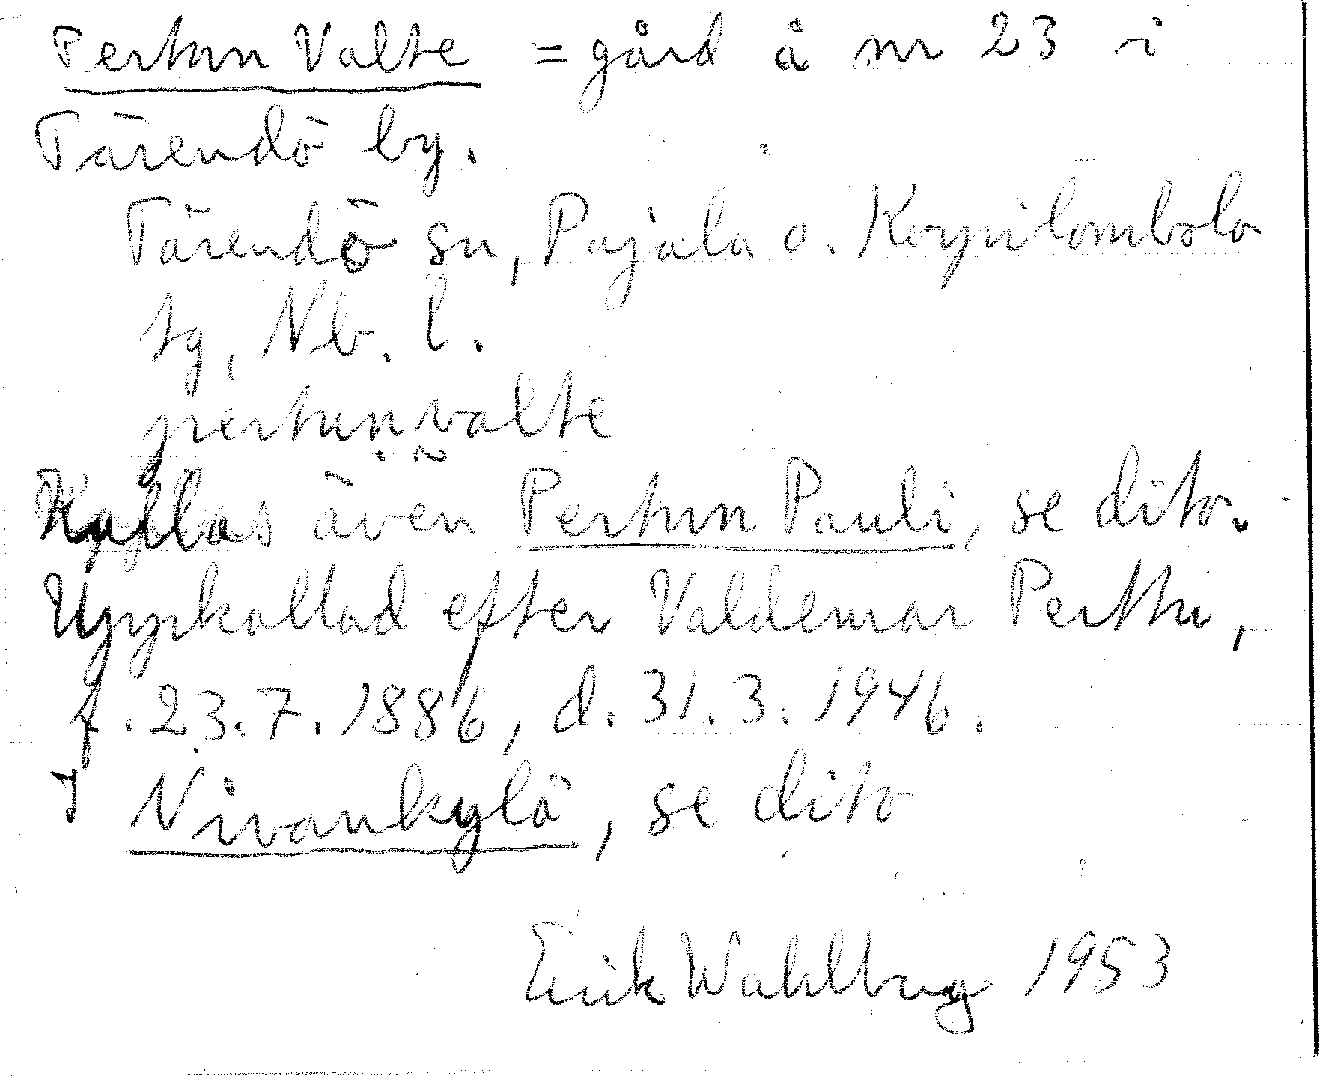 Perttun Valte = gård å nr 23 i
Tärendö by.
Tärendö sn, Pajala o. Korpilombolo
tg, Nb. l.
perttun valte
Kallas även Perttun Pauli, se dito.
Uppkallad efter Valdemar Perttu,
f. 23.7.1886, d. 31.3.1946.
I Nivankylä, se dito
Erik Wahlberg 1953